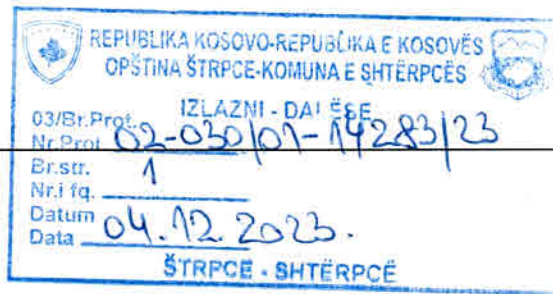 REPUBLIKA KOSOVO-REPUBLIKA E KOSOVËS
OPŠTINA ŠTRPCE-KOMUNA E SHTËRPCËS
IZLAZNI - DALËSE
03/Br.Prot.
Nr.Prot 02-030/01-14283/23
Br.str.
Nr.i fq. 1
Datum
Data 04.12.2023.
ŠTRPCE - SHTËRPCË